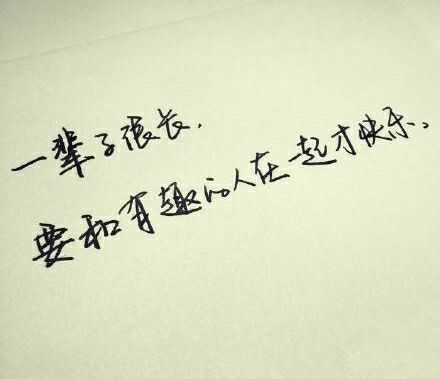 一辈子很长,
要和有趣的人在一起才快乐。